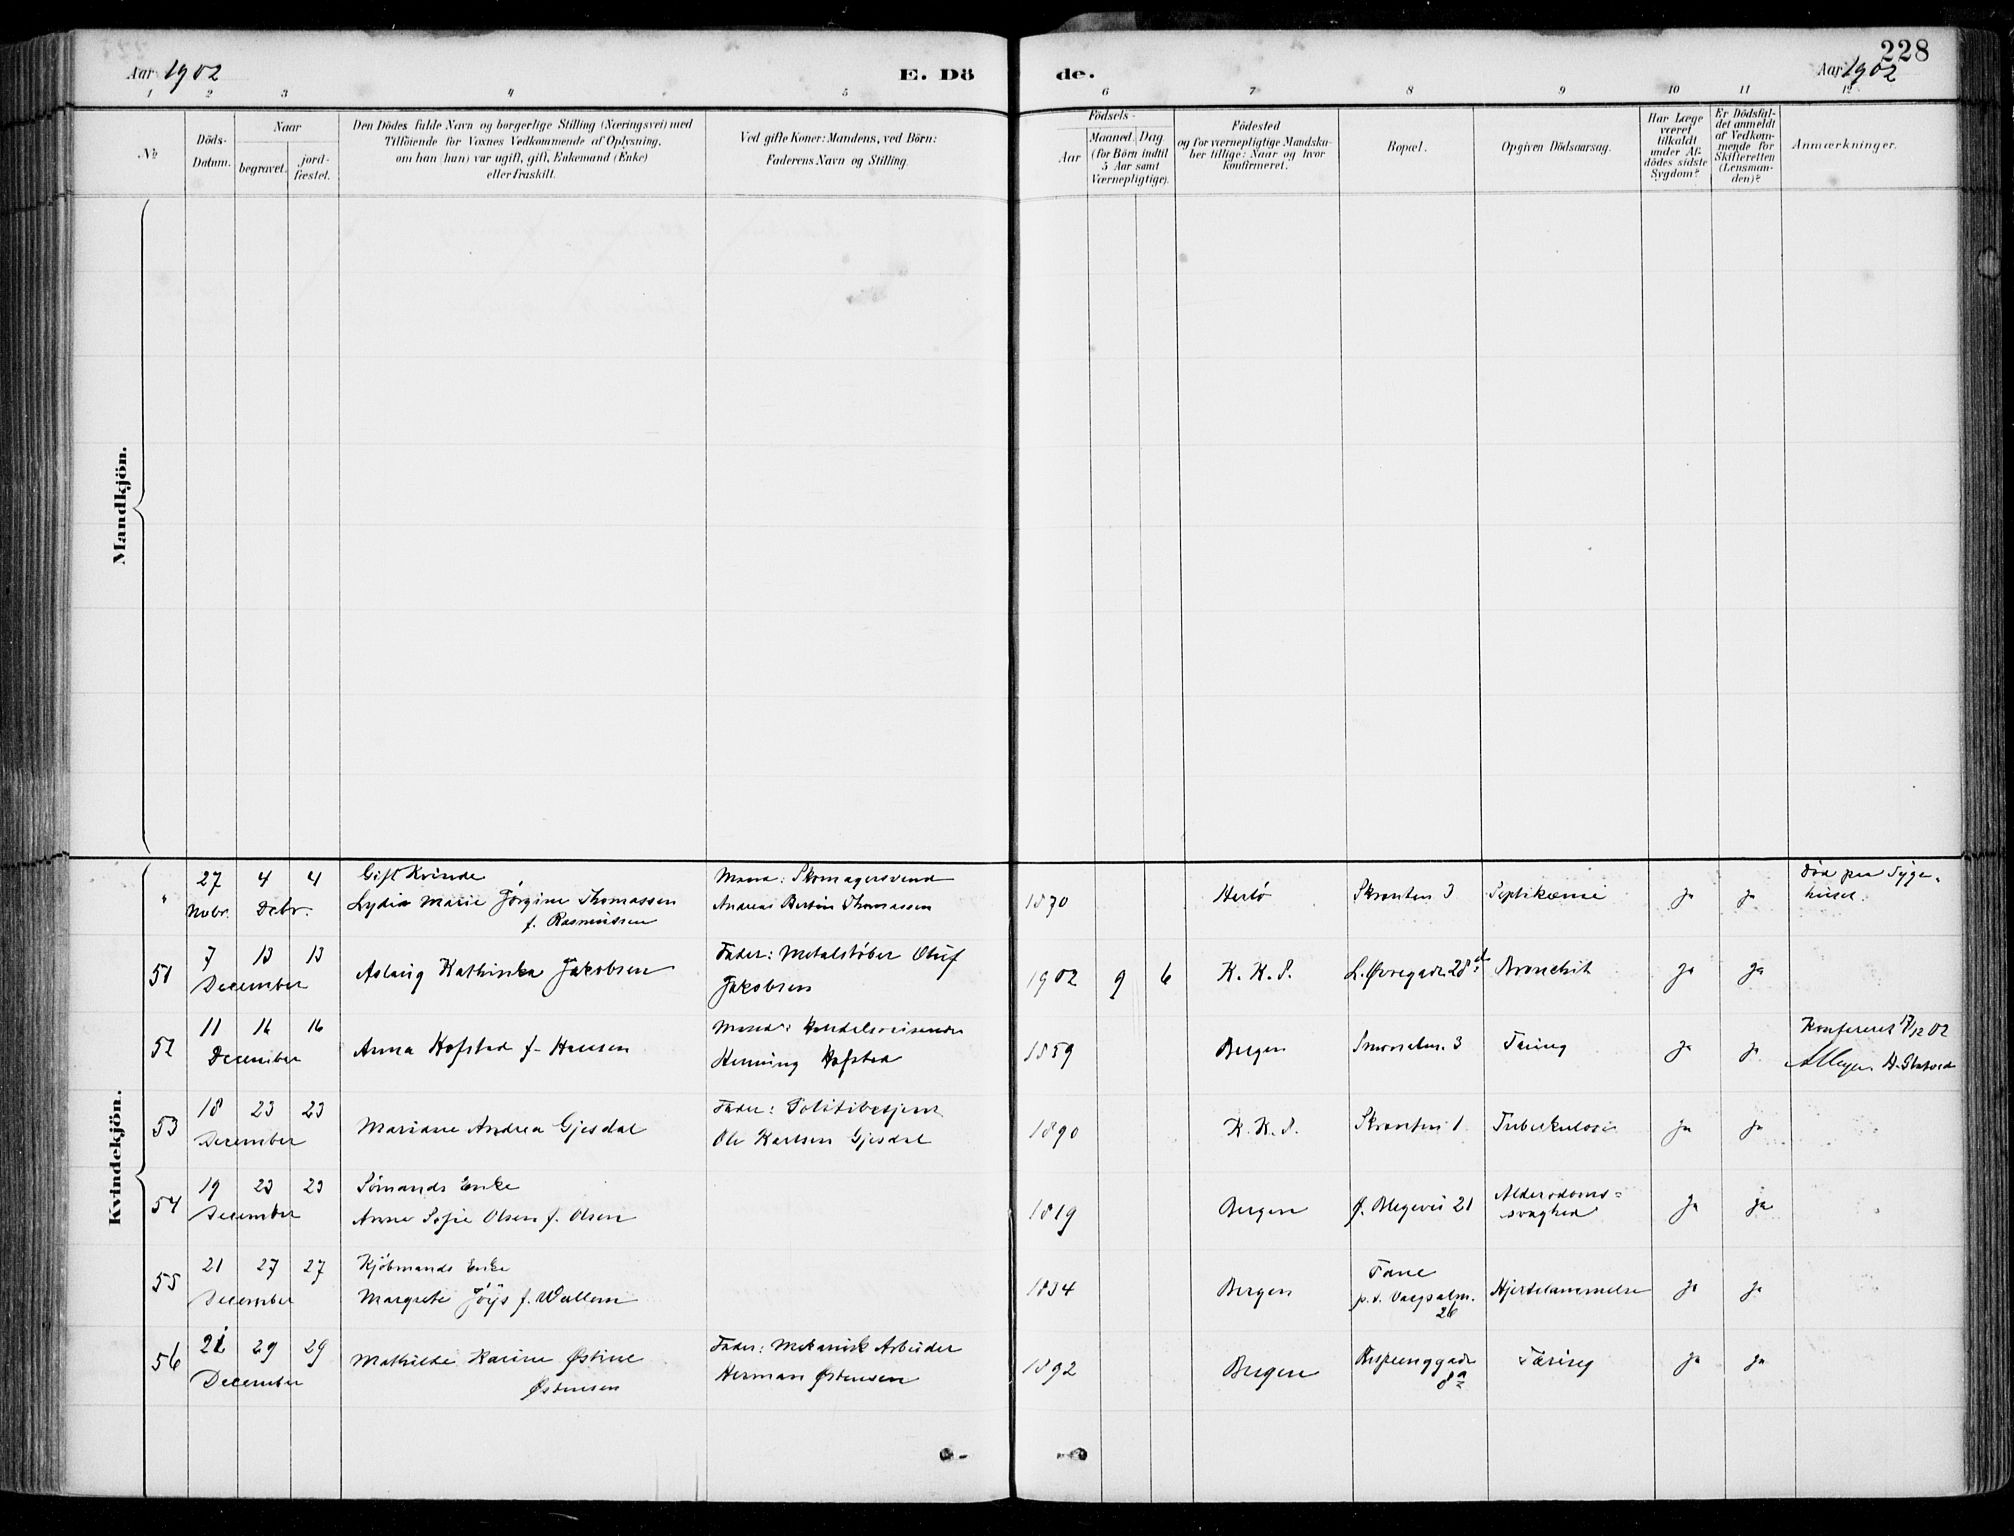 228
Aar 1902
E. Dö
de.
Aar 1902
1 2 3 4 5 6 7 8 9 10 11 12
No
Döds-
Datum.
Naar
begravet.
jord-
fæstet.
Den Dödes fulde Navn og borgerlige Stilling (Næringsvei) med
Tilföiende for Voxnes Vedkommende af Oplysning,
om han (hun) var ugift, gift, Enkemand (Enke)
eller fraskilt.
Ved gifte Koner: Mandens, ved Börn:
Faderens Navn og Stilling.
Födsels-
Aar
Maaned. Dag.
(for Börn indtil
5 Aar samt
Værnepligtige).
Födested
og for værnepligtige Mandska-
ber tillige: Naar og hvor
konfirmeret.
Bopæl.
Opgiven Dödsaarsag.
Har Læge
været
tilkaldt
under Af-
dödes sidste
Sygdom?
Er Dödsfal-
det anmeldt
af Vedkom-
mende for
Skifteretten
(Lensman-
den)?
Anmærkninger.
Mandkjön.
Kvindekjön.
" 27 4 4
Novbr. Decbr.
Gift Kvinde
Lydia Marie Jørgine Thomassen
f. Rasmussen
Mand: Skomagersvend
Andreas Bertin Thomassen
1870
Herlø
Skranten 3
Septikæmie
ja ja
Død paa Syge-
huset.
51 7 13 13
December
Aslaug Kathinka Jakobsen
Fader: Metalstøber Oluf
Jakobsen
1902 9 6
K. K. S.
L. Øvregade 28
Bronchit
ja ja
52 11 16 16
December
Anna Hofstad f. Hansen
Mand: Handelsreisende
Henning Hofstad
1859
Bergen
3
Tæring
ja ja
Konfereret 17/12 02
53 18 23 23
December
Mariane Andrea Gjesdal
Fader: Politibetjent
Ole Karlsen Gjesdal
1890
K. K. S.
Skranten 1
Tuberkulose
ja ja
54 19 23 23
December
Sømands Enke
Anne Sofie Olsen f. Olsen
1819
Bergen
Ø. Blegevei 21
Alderdoms-
svaghed
ja ja
55 21 27 27
December
Kjøbmands Enke
Margrete Joys f. Wallem
1834
Bergen
Fane
26
Hjertelammelse
ja ja
56 21 29 29
December
Mathilde Karine Østine
Østensen
Fader: Mekanisk Arbeider
Herman Østensen
1892
Bergen
8a
Tæring
ja ja